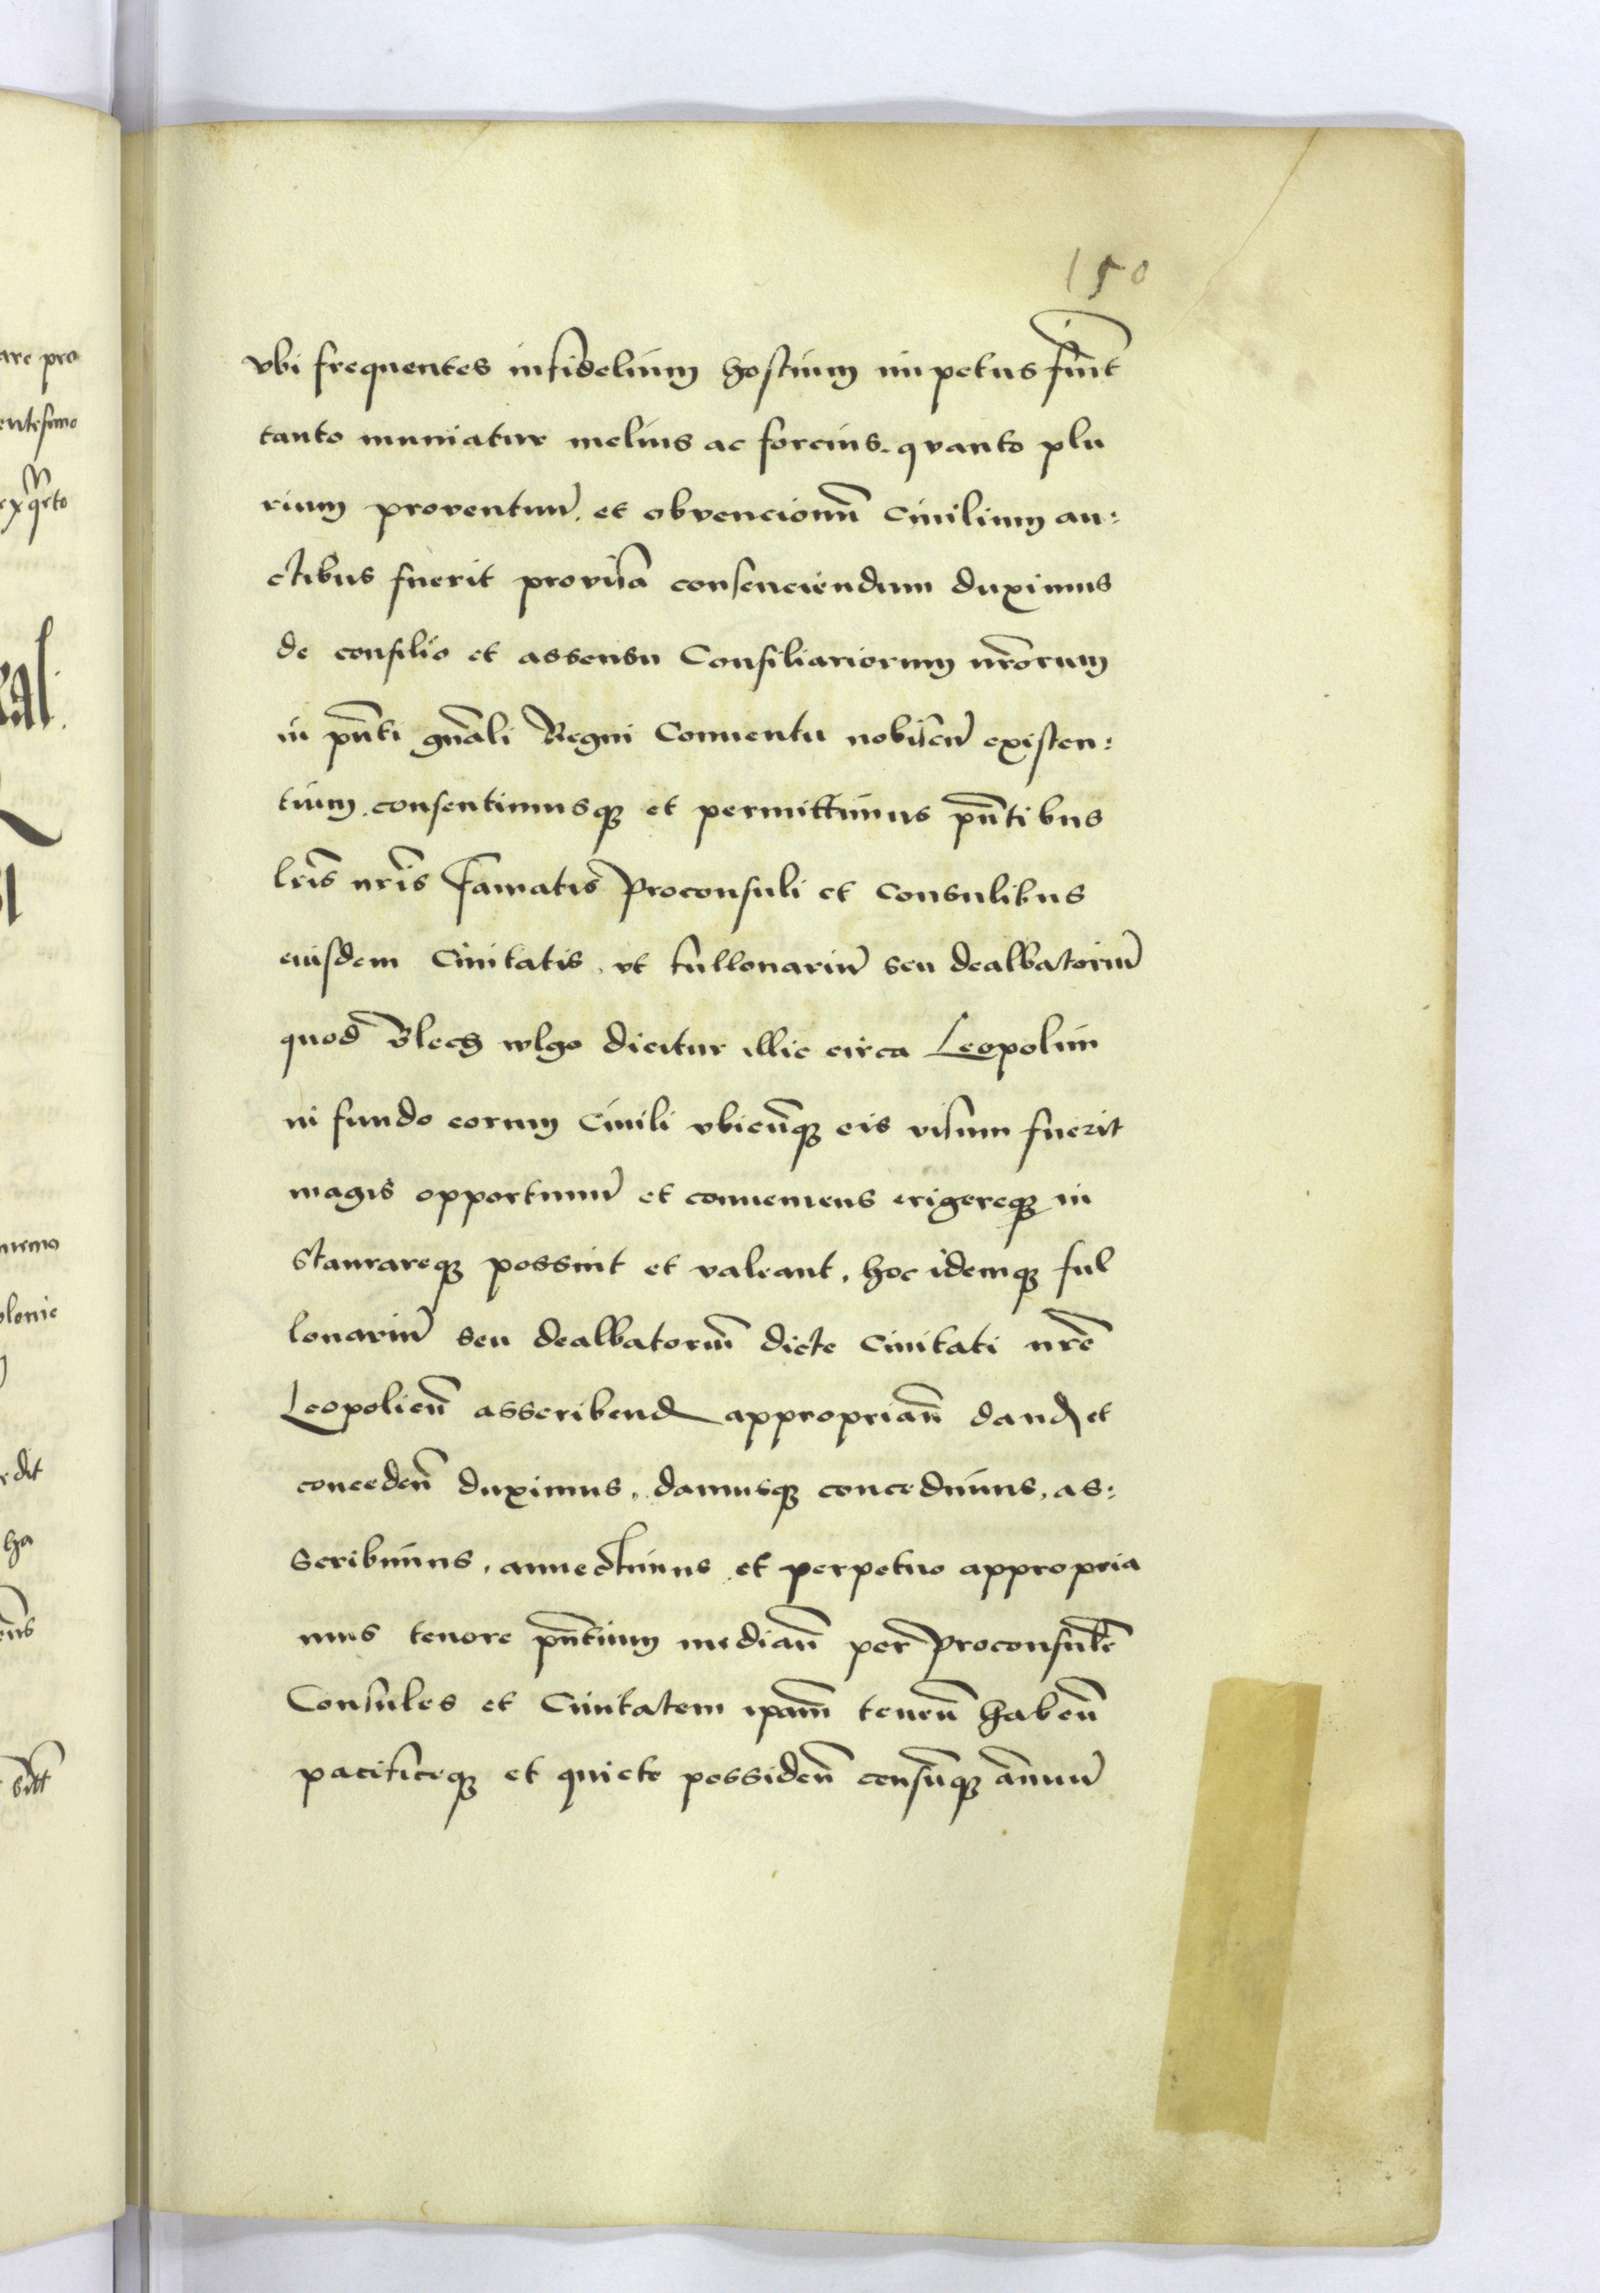 150
vbi frequentes infidelium hostium impetus fiūt
tanto muniatur melius ac forcius. quanto plu
rium proventuū. et obvencionū Ciuilium au:
ctibus fuerit provisa consenciendum duximus
de consilio et assensu Consiliariorum nr̄orum
in pn̄ti gn̄ali Regni Conuentu nobiscū existen:
tium. consentimusqꝫ et permittimus pn̄tibus
lr̄is nr̄is famatis Proconsuli et Consulibus
eiusdem Ciuitatis. vt fullonariū seu dealbatoriū
quod Blech wlgo dicitur illic circa Leopolim
in fundo eorum Ciuili vbicūqꝫ eis visum fuerit
magis opportunū et conueniens erigereqꝫ in
staurareqꝫ possint et valeant. hoc idemqꝫ ful
lonariū seu dealbatoriū dicte Ciuitati nr̄e
Leopolien̄ asscribend approprian̄ dand et
conceden̄ duximus. damusqꝫ concedimus. as:
scribimus. annectimus et perpetuo appropria
mus tenore pn̄tium median̄ per Proconsulē
Consules et Ciuitatem ipam̄ tenen̄ haben̄
pacificeqꝫ et quiete possiden̄ censūqꝫ annuū
are pro
entesimo
ral
memo
olonie
edit
ha